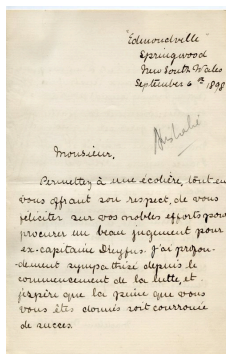 "Edmondville"
Springwood
New South Wales
September 6th 1898
Monsieur,
Permettez à une écolière, tout en
vous offrant son respect, de vous
féliciter sur vos nobles efforts pour
procurer un beau jugement pour
ex-capitaine Dreyfus. J'ai profon-
dement sympathisé depuis le
commencement de la lutte, et
j'espère que la peine que vous
vous êtes donnés soit couronée
de succès.